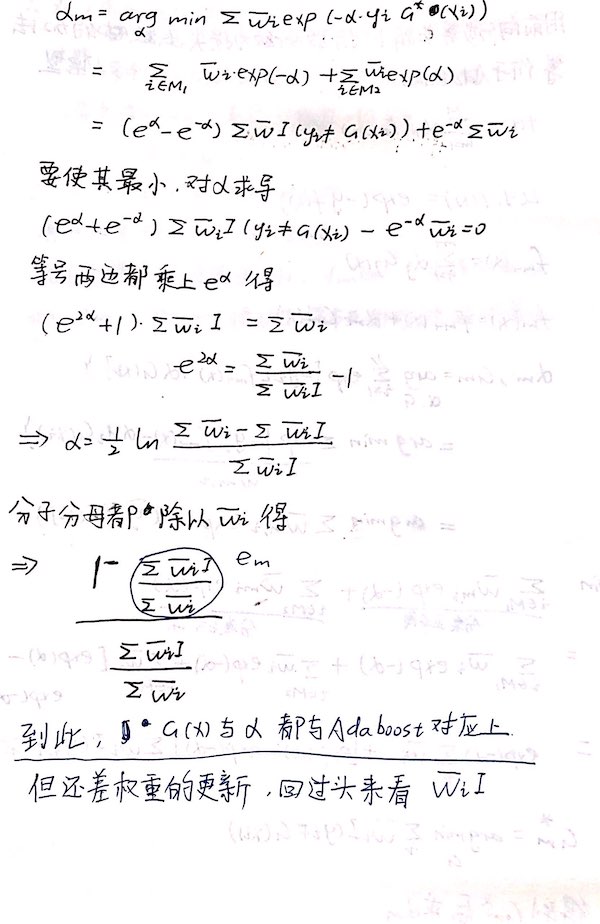 αm = arg min Σ w̄i exp(-α·yi G*(xi))
α
= Σ w̄i·exp(-α) + Σ w̄i exp(α)
i∈M1 i∈M2
= (e^α - e^-α) Σ w̄ I(yi≠G(xi)) + e^-α Σ w̄i
要使其最小,对α求导
(e^α + e^-α) Σ w̄i I(yi≠G(xi) - e^-α w̄i = 0
等号两边都乘上 e^α 得
(e^2α + 1)·Σ w̄i I = Σ w̄i
e^2α = Σ w̄i / Σ w̄i I - 1
⇒ α = 1/2 ln (Σ w̄i - Σ w̄i I) / Σ w̄i I
分子分母都 除以 w̄i 得
⇒ (1 - Σ w̄i I / Σ w̄i) em
Σ w̄i I / Σ w̄i
到此, G(x)与α都与Adaboost对应上
但还差权重的更新,回过头来看 w̄i I